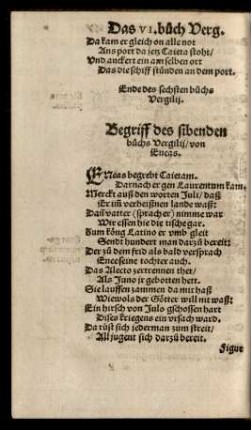 Das VI. bůch Verg.
Da kam er gleich on alle not
Ans port da jetz Caieta stoht/
Vnd anckert ein am selben ort
Das die schiff stůnden an dem port.
Ende des sechsten bůchs
Vergilij.
Begriff des sibenden
bůchs Vergilij/ von
Eneas.
ENeas begrebt Caietam.
Darnach er gen Laurentum kam,
Merckt auß den worten Juli/ daß
Er im̄ verheißnen lande waß:
Dañ vatter (sprach er) nimme war
Wir essen hie die tische gar.
Zum kőng Latino er vmb gleit
Sendt hundert man darzů bereit:
Der zů dem frid als bald versprach
Enee seine tochter auch.
Das Alecto zertrennen thet/
Als Juno jr gebotten hett.
Sie lauffen zammen da mit haß
Wiewols der Götter will nit waß:
Ein hirsch von Julo gschossen hart
Dises kriegens ein vrsach ward.
Da rüst sich jederman zum streit/
All jugent sich darzů bereit.
Figur